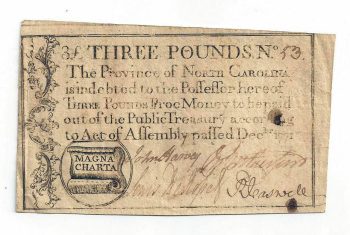 3£ THREE POUNDS. No 53.
The Province of NORTH CAROLINA
is indebted to the Possessor hereof
THREE POUNDS Proc Money to be paid
out of the Public Treasury according
to Act of Assembly passed Decr 1771
MAGNA
CHARTA
John Harvey
Lewis
RCaswell